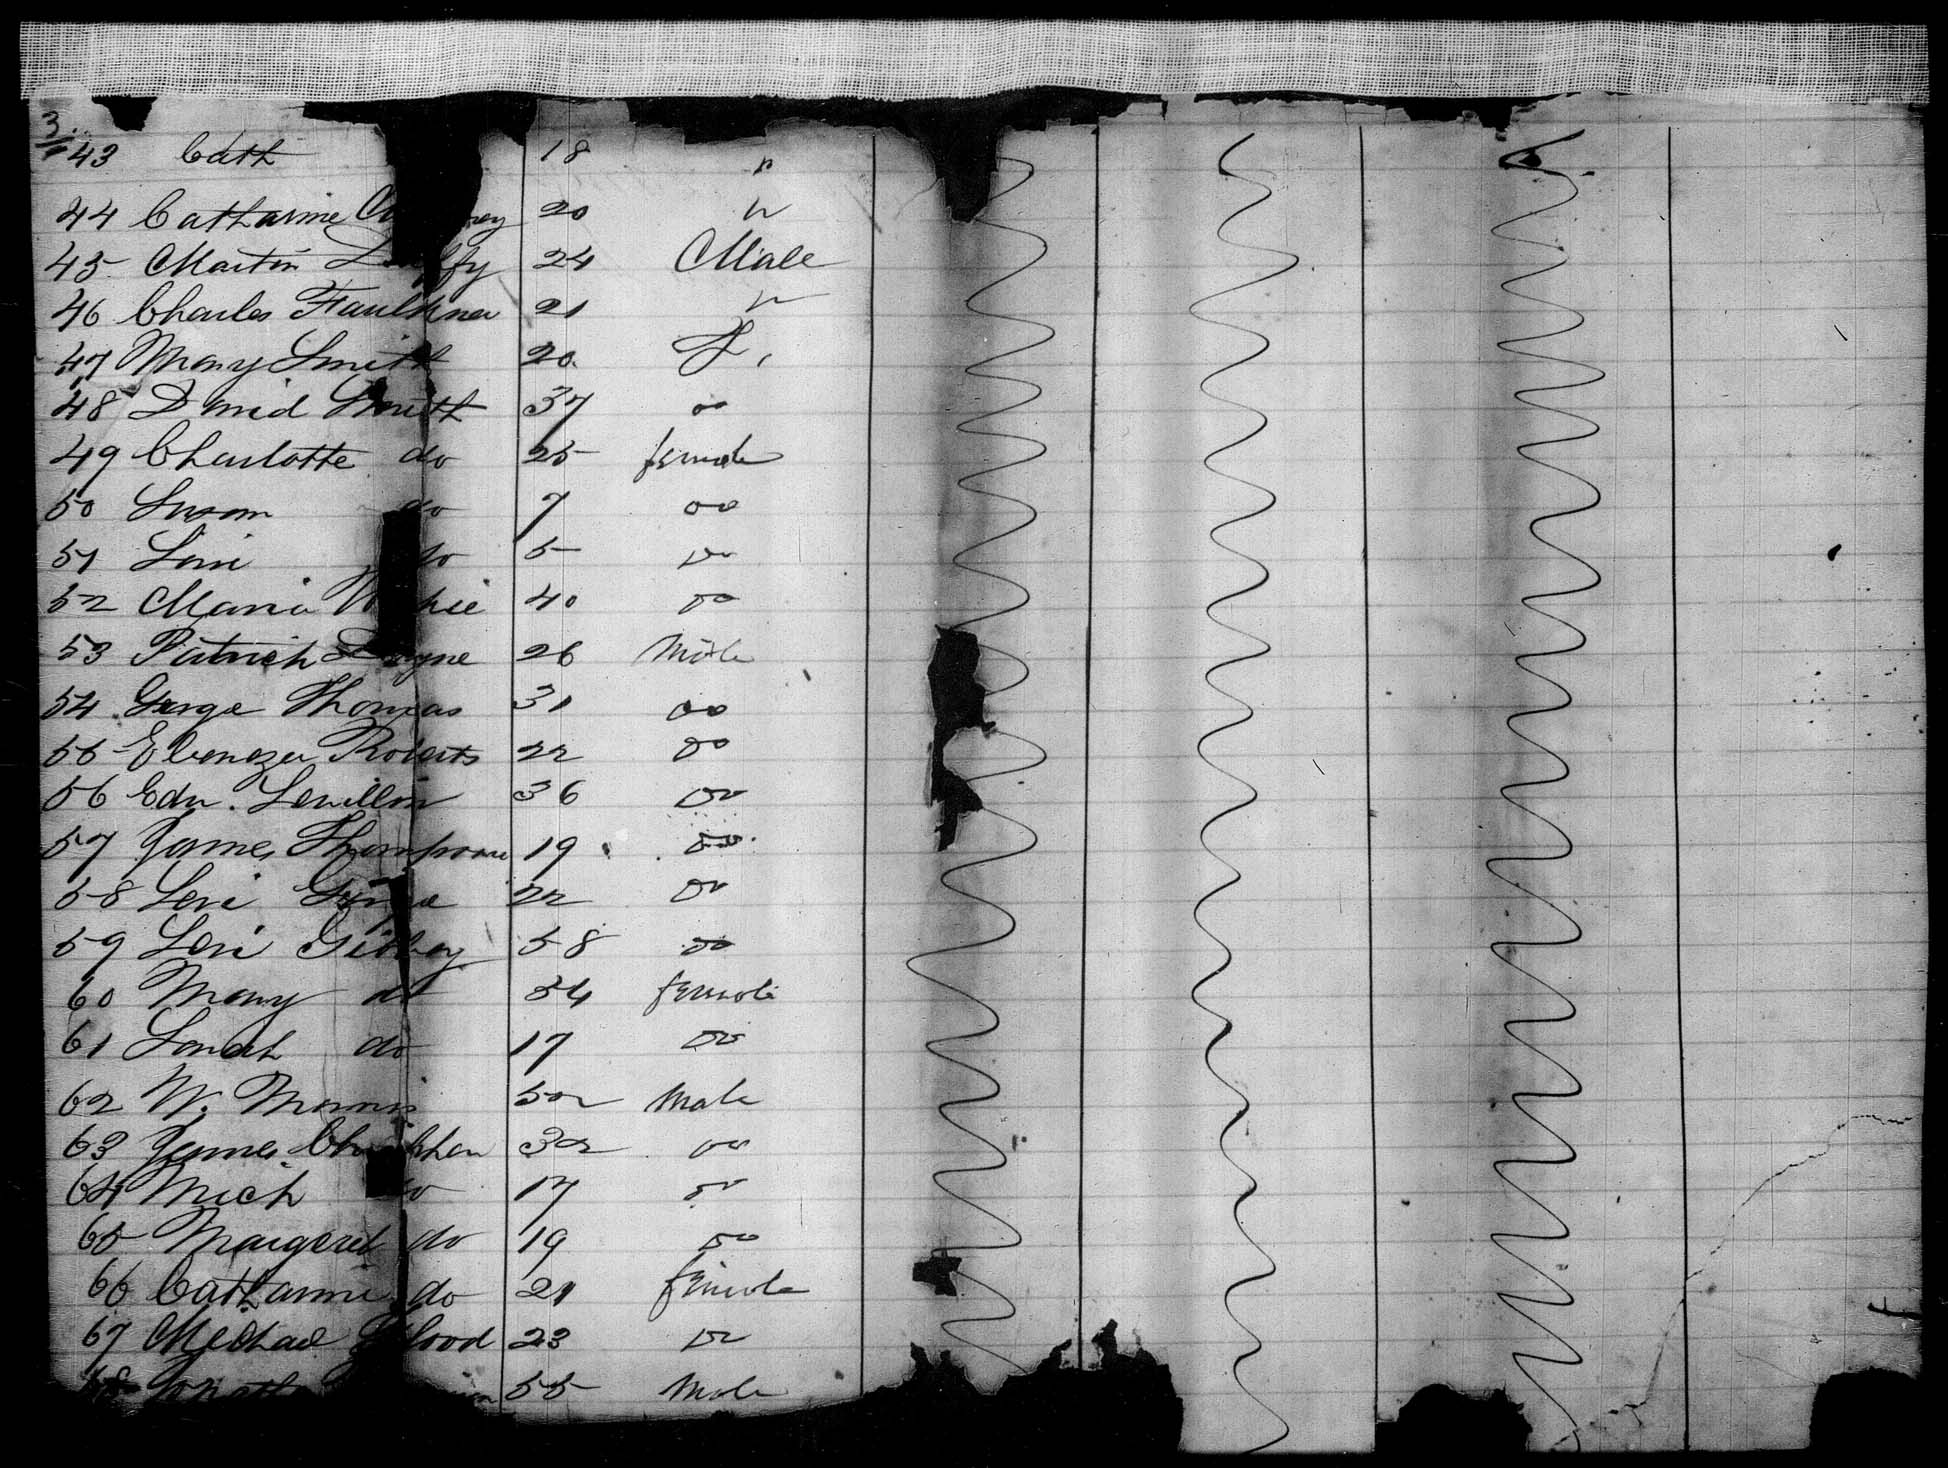 3
43 Cath 18 "
44 Catharine 20 "
45 Martin 24 Male
46 Charles Faulkner 21 "
47 Mary Smith 20 F.
48 David Smith 37 do
49 Charlotte do 25 female
50 Susan do 7 do
51 Levi do 5 do
52 Maria 40 do
53 Patrick 26 Male
54 George Thomas 31 do
55 Ebenezer Roberts 22 do
56 Edw. 36 do
57 James Thompson 19 do
58 Levi 22 do
59 Levi 58 do
60 Mary do 54 female
61 Sarah do 17 do
62 W. Morris 52 Male
63 James 32 do
64 Mich do 17 do
65 Margeret do 19 do
66 Catharine do 21 female
67 Michael 23 do
68 55 Male